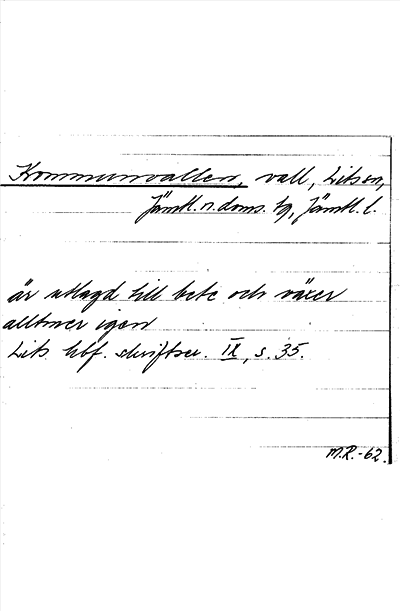 Kommunvallen, vall, Lits sn,
Jämtl. n. doms. tg, Jämtl. l.
är utlagd till bete och växer
alltmer igen
Lits hbf. skriftser. IX, s. 35.
M.R.-62.